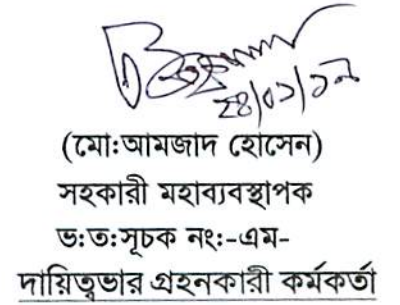 ২৪/০১/১৯
(মো:আমজাদ হোসেন)
সহকারী মহাব্যবস্থাপক
ভ:ত:সূচক নং:-এম-
দায়িত্বভার গ্রহনকারী কর্মকর্তা